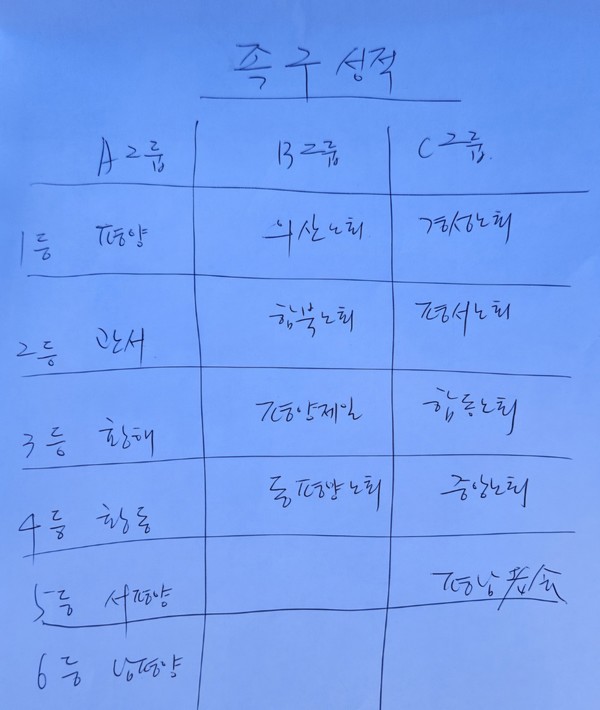 족구 성적
A그룹 B그룹 C그룹
1등 평양 의산노회 경성노회
2등 관서 함북노회 평서노회
3등 황해 평양제일 함동노회
4등 황동 동평양노회 중앙노회
5등 서평양 평남老会
6등 남평양